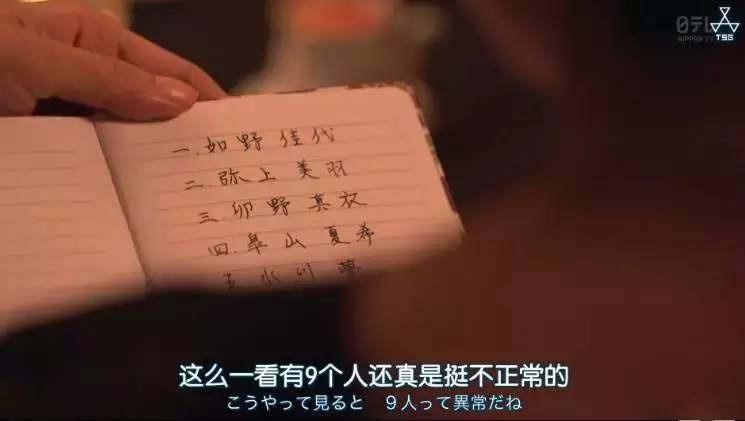 日テレ
NIPPON TV
TSG
一.如野 佳代
二.弥上 美羽
三.卯野 真衣
四.皐山 夏希
五.水川
这么一看有9个人还真是挺不正常的
こうやって見ると 9人って異常だね